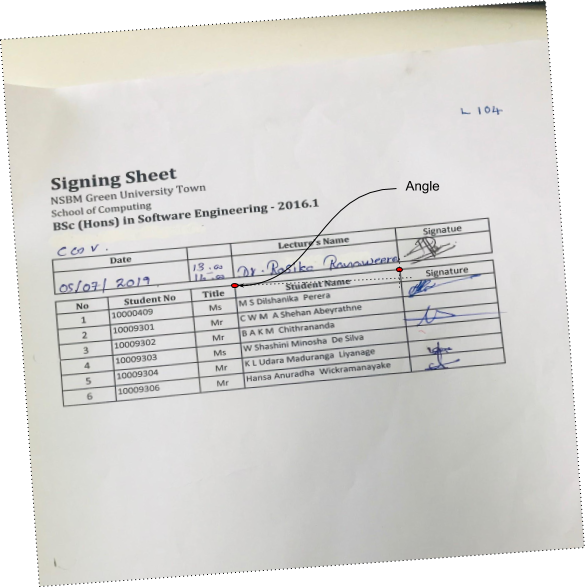 L 104
Signing Sheet
NSBM Green University Town
School of Computing
BSc (Hons) in Software Engineering - 2016.1
Angle
Date Lecture's Name Signatue
05/07/ 2019 13.00 Dr. Rasika Ranaweera
No Student No Title Student Name Signature
1 10000409 Ms M S Dilshanika Perera
2 10009301 Mr C W M A Shehan Abeyrathne
3 10009302 Mr B A K M Chithrananda
4 10009303 Ms W Shashini Minosha De Silva
5 10009304 Mr K L Udara Maduranga Liyanage
6 10009306 Mr Hansa Anuradha Wickramanayake